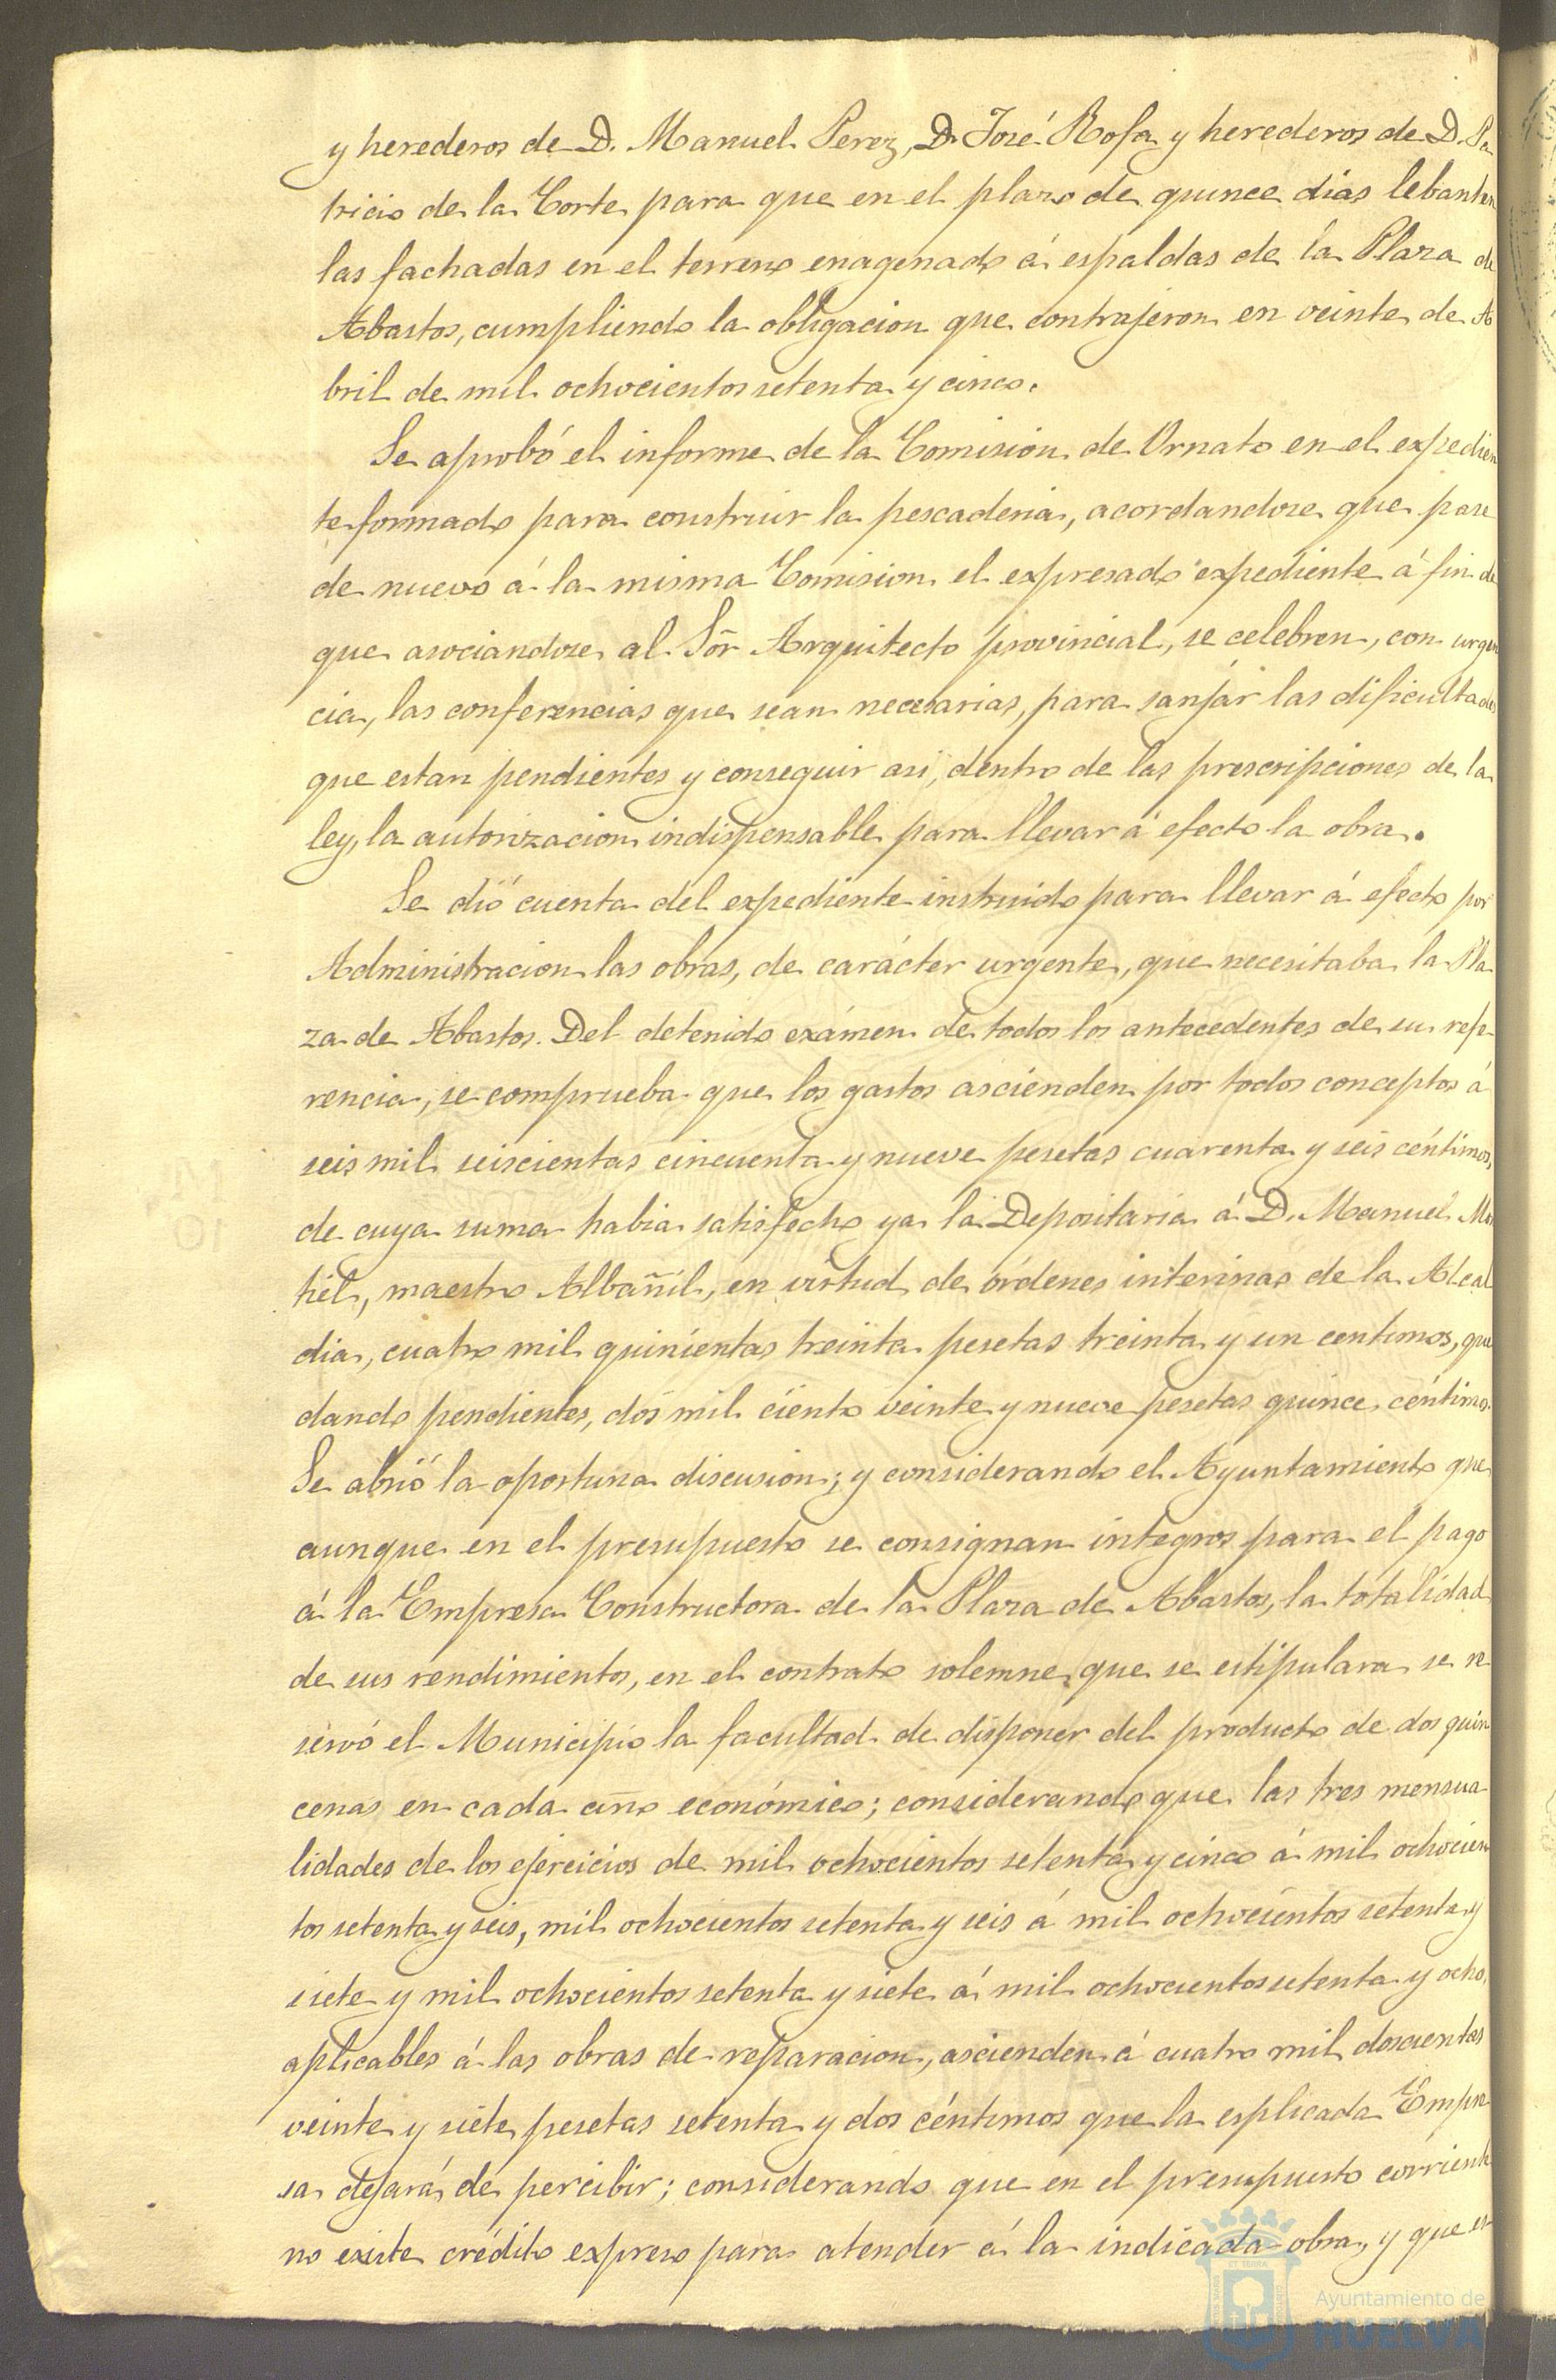 y herederos de D. Manuel Perez, D. José Rofa y herederos de D. Pa
tricio de la Corte para que en el plazo de quince dias lebanten
las fachadas en el terreno enagenado á espaldas de la Plaza de
Abastos, cumpliendo la obligacion que contrajeron en veinte de A
bril de mil ochocientos setenta y cinco.
Se aprobó el informe de la Comision de Ornato en el expedien
te formado para construir la pescaderia, acordandose que pase
de nuevo á la misma Comision el expresado expediente á fin de
que asociandose al Sõr Arquitecto provincial, se celebren, con urgen
cia, las conferencias que sean necesarias, para sanjár las dificultades
que estan pendientes y conseguir asi, dentro de las prescripciones de la
ley, la autorizacion indispensable para llevar á efecto la obra.
Se dió cuenta del expediente instruido para llevar á efecto por
Administracion las obras, de carácter urgente, que necesitaba la Pla
za de Abastos. Del detenido exámen de todos los antecedentes de su refe-
rencia, se comprueba que los gastos ascienden por todos conceptos á
seis mil seiscientas cincuenta y nueve pesetas cuarenta y seis céntimos,
de cuya suma habia satisfecho ya la Depositaria á D. Manuel Mon
tiel, maestro Albañil, en virtud de órdenes interinas de la Alcal
dia, cuatro mil quinientas treinta pesetas treinta y un centimos, que
dando pendientes, dos mil ciento veinte y nueve pesetas quince céntimos.
Se abrió la oportuna discusion; y considerando el Ayuntamiento que
aunque en el presupuesto se consignan integros para el pago
á la Empresa Constructora de la Plaza de Abastos, la totalidad
de sus rendimientos, en el contrato solemne que se estipulara se re
servó el Municipio la facultad de disponer del producto de dos quin
cenas en cada año económico; considerando que las tres mensua-
lidades de los ejercicios de mil ochocientos setenta y cinco á mil ochocien
tos setenta y seis, mil ochocientos setenta y seis á mil ochocientos setenta y
siete y mil ochocientos setenta y siete á mil ochocientos setenta y ocho,
aplicables á las obras de reparacion, ascienden á cuatro mil doscientas
veinte y siete pesetas setenta y dos céntimos que la esplicada Empre
sa dejará de percibir; considerando que en el presupuesto corriente
no existe crédito expreso para atender á la indicada obra, y que es-
Ayuntamiento de
HUELVA